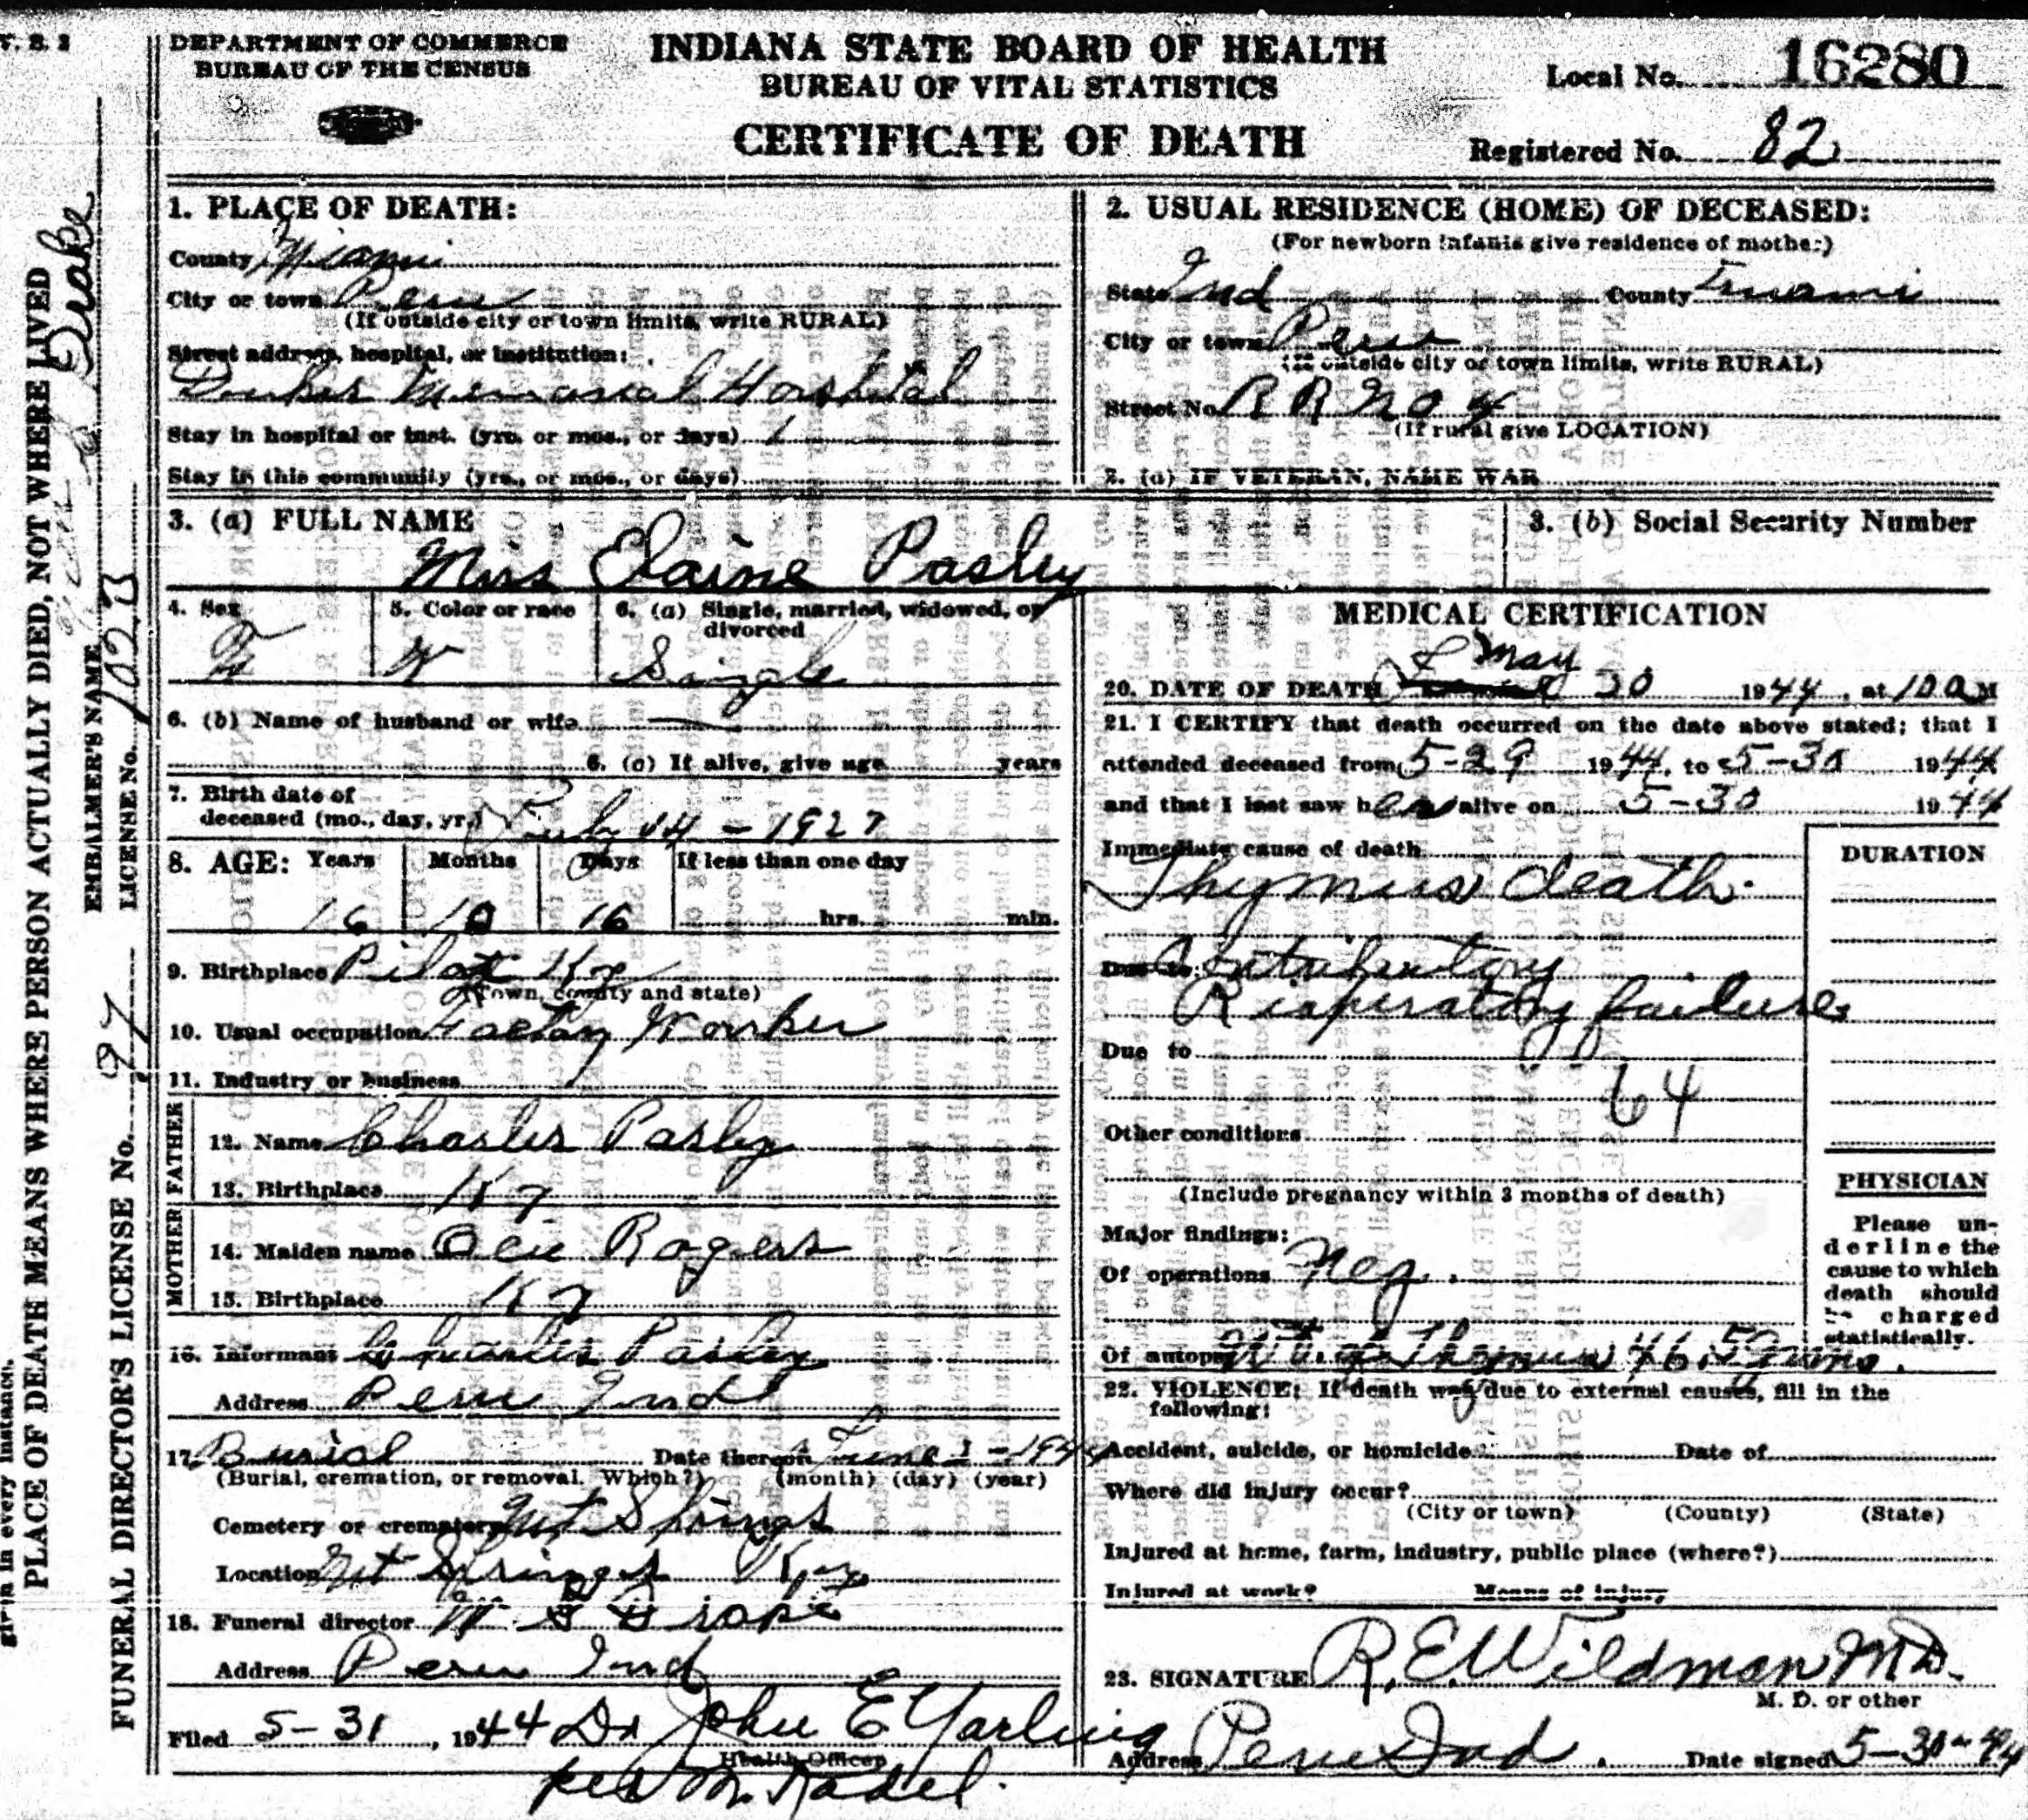 V. S. 2
DEPARTMENT OF COMMERCE
BUREAU OF THE CENSUS
INDIANA STATE BOARD OF HEALTH
BUREAU OF VITAL STATISTICS
CERTIFICATE OF DEATH
Local No. 16280
Registered No. 82
1. PLACE OF DEATH:
County Miami
City or town Peru
(If outside city or town limits, write RURAL)
Street address, hospital, or institution:
Dukes Memorial Hospital
Stay in hospital or inst. (yrs. or mos., or days) 1
Stay in this community (yrs., or mos., or days)
2. USUAL RESIDENCE (HOME) OF DECEASED:
(For newborn infants give residence of mother)
State Ind County Miami
City or town Peru
(If outside city or town limits, write RURAL)
Street No. R R No 4
(If rural give LOCATION)
2. (a) IF VETERAN, NAME WAR
3. (a) FULL NAME
Miss Elaine Pasley
3. (b) Social Security Number
4. Sex
F
5. Color or race
W
6. (a) Single, married, widowed, or divorced
Single
6. (b) Name of husband or wife
6. (c) If alive, give age years
7. Birth date of
deceased (mo., day, yr.) July 14 - 1927
8. AGE: Years Months Days If less than one day
16 10 16 hrs. min.
9. Birthplace Pilot Ky
(Town, county and state)
10. Usual occupation Factory Worker
11. Industry or business
FATHER
12. Name Charles Pasley
13. Birthplace Ky
MOTHER
14. Maiden name Rogers
15. Birthplace Ky
16. Informant Charles Pasley
Address Peru Ind
17. Burial Date thereon June 1 - 194
(Burial, cremation, or removal. Which?) (month) (day) (year)
Cemetery or crematory Mt Springs
Location Mt Springs Ky
18. Funeral director Drake
Address Peru Ind
Filed 5-31, 1944 Dr John E Yarling
Health Officer
per M. Radel.
MEDICAL CERTIFICATION
20. DATE OF DEATH May 30 1944, at 1 00 a M
21. I CERTIFY that death occurred on the date above stated; that I
attended deceased from 5-29 1944, to 5-30 1944
and that I last saw her alive on 5-30 1944
Immediate cause of death
Thymus death.
DURATION
Due to Contributory
Respiratory failure
Due to
64
Other conditions
(Include pregnancy within 3 months of death)
Major findings:
Of operations Neg.
Of autopsy Wt. of Thymus 46.5 grms.
PHYSICIAN
Please un-
derline the
cause to which
death should
be charged
statistically.
22. VIOLENCE: If death was due to external causes, fill in the
following:
Accident, suicide, or homicide Date of
Where did injury occur?
(City or town) (County) (State)
Injured at home, farm, industry, public place (where?)
Injured at work? Means of injury
23. SIGNATURE R. E. Wildman M.D.
M. D. or other
Address Peru Ind. Date signed 5-30-44
given in every instance.
PLACE OF DEATH MEANS WHERE PERSON ACTUALLY DIED, NOT WHERE LIVED
EMBALMER'S NAME Drake
FUNERAL DIRECTOR'S LICENSE No. 97 LICENSE No.